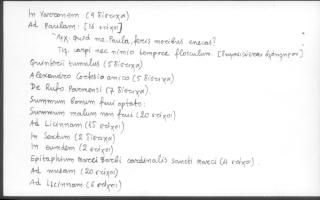 In Varronem (9 δίστιχα)
Ad Paulam: [16 στίχοι]
Ἀρχ. quid me Paula, feris moribus enecas?
Τέλ. carpi nec nimio tempore flosculum.
Quinterii tumulus (5 δίστιχα)
Alexandro Cortesio amico (5 δίστιχα)
De Rufo Parmensi (7 δίστιχα).
Summum bonum fuii optato:
Summum malum non fuii (20 στίχοι)
Ad Licinnam (15 στίχοι)
In Sextum (2 δίστιχα)
In eundem (2 στίχοι)
Epitaphium Marci Barbi cardinalis sancti Marci (4 στίχοι).
Ad musam (20 στίχοι)
Ad Licinnam (6 στίχοι)